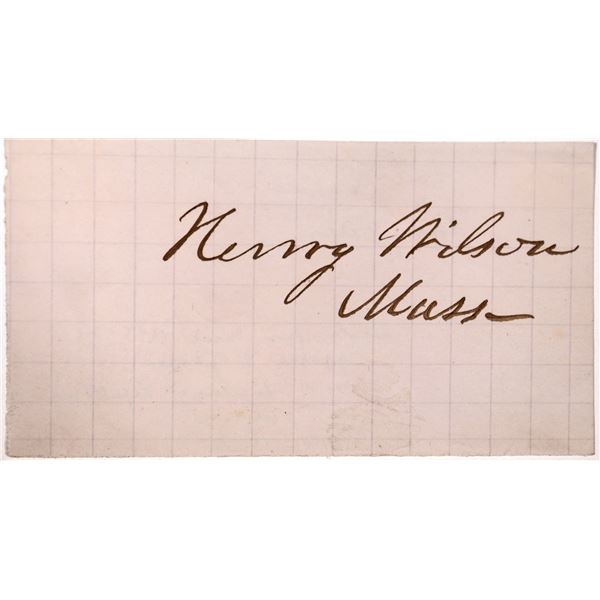 Henry Wilson
Mass